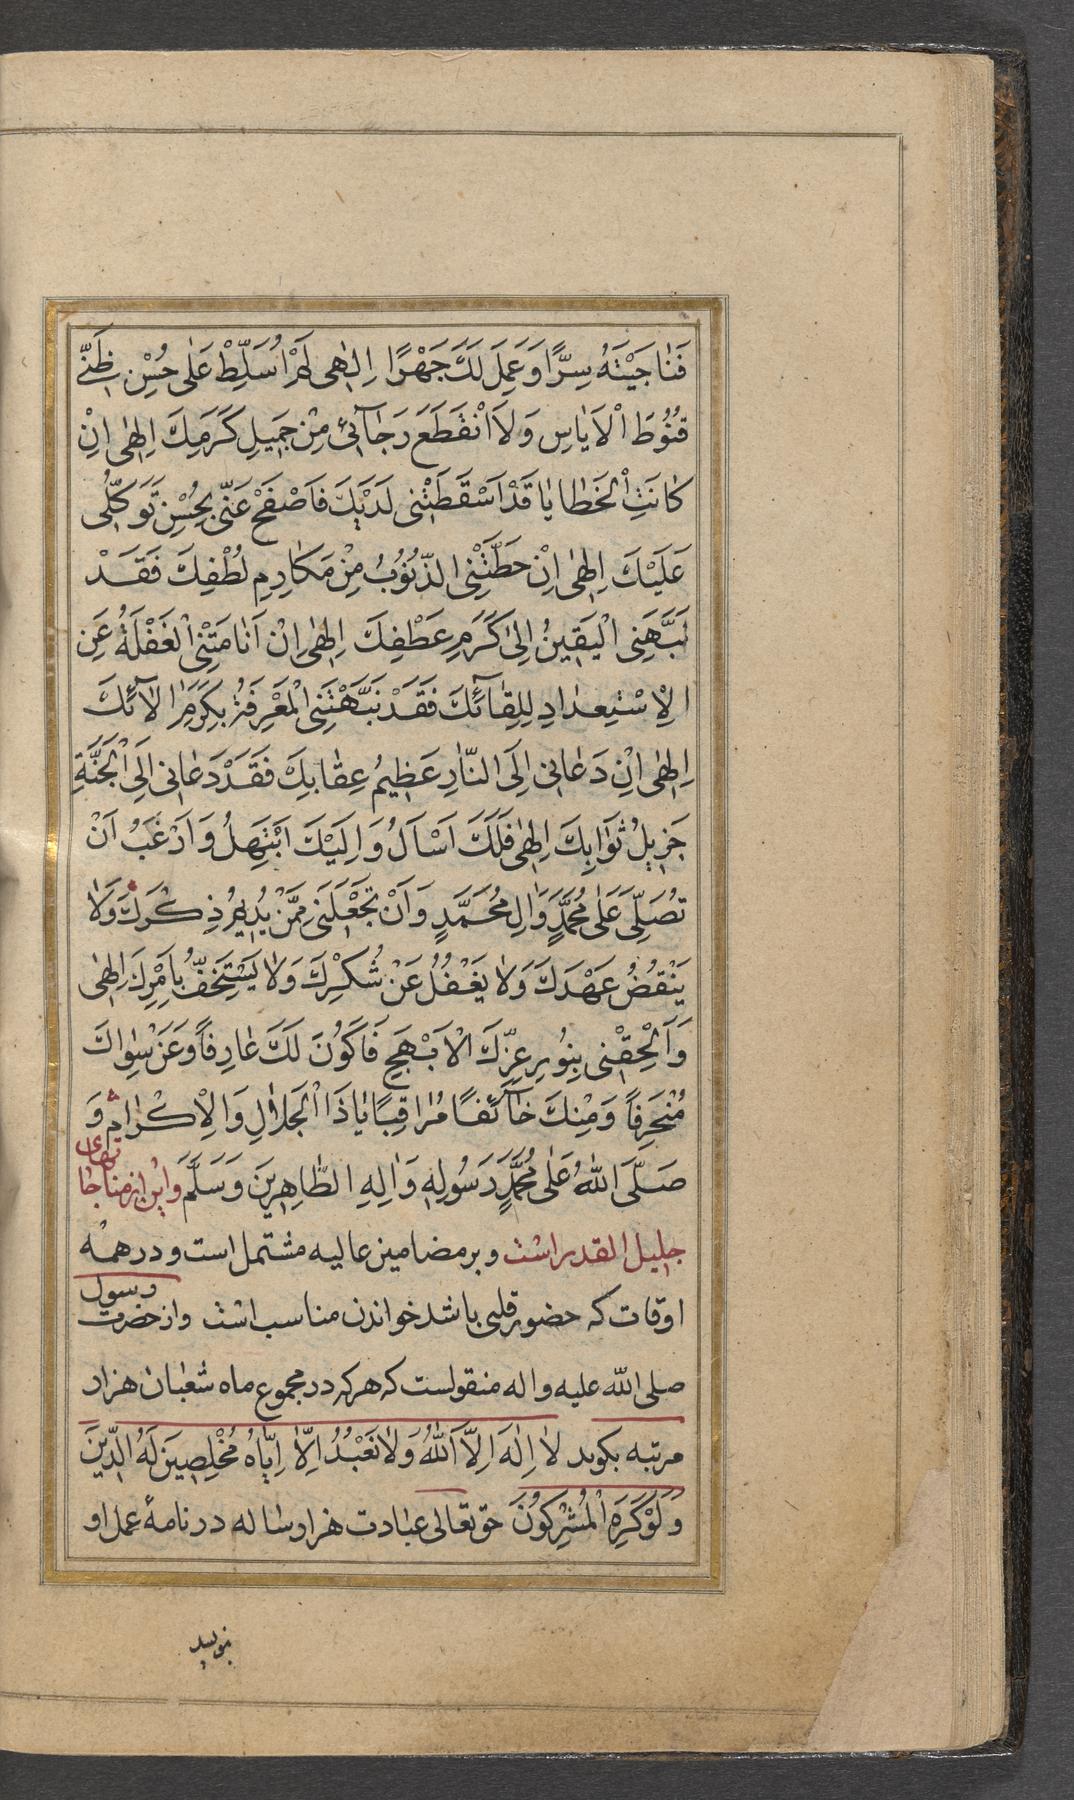 فَنٰاجَيْتَهُ سِرًّا وَعَمِلَ لَكَ جَهْرًا اِلٰهى لَمْ اُسَلِّطْ عَلٰى حُسْنِ ظَنّى
قُنُوطَ الْاَيٰاسِ وَلاَ انْقَطَعَ رَجٰآئى مِنْ جَميلِ كَرَمِكَ اِلٰهى اِنْ
كٰانَتِ الْخَطٰايٰا قَدْ اَسْقَطَتْنى لَدَيْكَ فَاصْفَحْ عَنّى بِحُسْنِ تَوَكُّلى
عَلَيْكَ اِلٰهى اِنْ حَطَّتْنِى الذُّنُوبُ مِنْ مَكٰارِمِ لُطْفِكَ فَقَدْ
نَبَّهَنِى الْيَقينُ اِلىٰ كَرَمِ عَطْفِكَ اِلٰهى اِنْ اَنٰامَتْنِى الْغَفْلَةُ عَنِ
الْاِسْتِعدٰادِ لِلِقٰائِكَ فَقَدْ نَبَّهَتْنِى الْمَعْرِفَةُ بِكَرَمِ اٰلآئِكَ
اِلٰهى اِنْ دَعٰانى اِلَى النّٰارِ عَظيمُ عِقٰابِكَ فَقَدْ دَعٰانى اِلَى الْجَنَّةِ
جَزيلُ ثَوٰابِكَ اِلٰهى فَلَكَ اَسْاَلُ وَاِلَيْكَ اَبْتَهِلُ وَاَرْغَبُ اَنْ
تُصَلِّىَ عَلٰى مُحَمَّدٍ وَاٰلِ مُحَمَّدٍ وَاَنْ تَجْعَلَنى مِمَّنْ يُديمُ ذِكْرَكَ وَلاٰ
يَنْقُضُ عَهْدَكَ وَلاٰ يَغْفُلُ عَنْ شُكْرِكَ وَلاٰ يَسْتَخِفُّ بِاَمْرِكَ اِلٰهى
وَاَلْحِقْنى بِنُورِ عِزِّكَ الْاَبْهَجِ فَاَكُونَ لَكَ عٰارِفاً وَعَنْ سِوٰاكَ
مُنْحَرِفاً وَمِنْكَ خٰآئِفًا مُرٰاقِبًا يٰا ذَا الْجَلاٰلِ وَالْاِكْرٰامِ وَ
صَلَّى اللّٰهُ عَلٰى مُحَمَّدٍ رَسُولِهِ وَاٰلِهِ الطّٰاهِرينَ وَسَلَّمَ واين از مناجاتهاى
جليل القدر است و بر مضامين عاليه مشتمل است و در همه
اوقات كه حضور قلبى باشد خواندن مناسب است و از حضرت رسول
صلى اللّه عليه و اله منقولست كه هر كه در مجموع ماه شعبان هزار
مرتبه بكويد لاٰ اِلٰهَ اِلاَّ اللّٰهُ وَلاٰ نَعْبُدُ اِلاّٰ اِيّٰاهُ مُخْلِصينَ لَهُ الدّينَ
وَلَوْ كَرِهَ الْمُشْرِكُونَ حق تعالى عبادت هزار ساله در نامهٔ عمل او
بنويسد